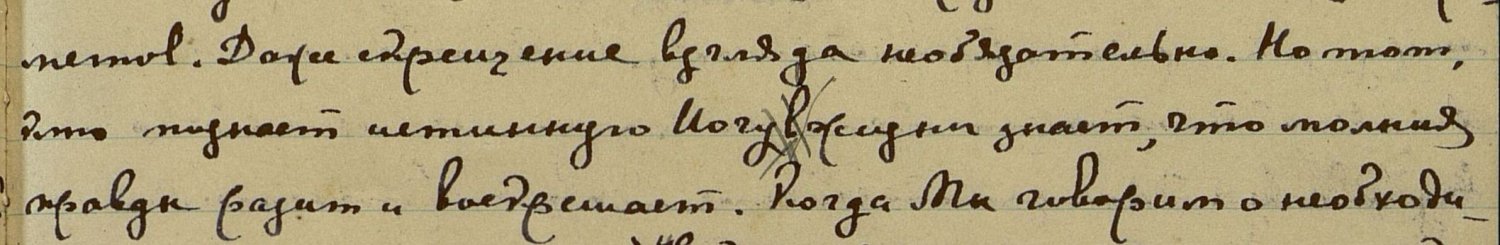 метов. Даже скрещение взгляда необязательно. Но тот,
кто познает истинную Йогу жизни знает, что молния
правды разит и воскрешает. Когда Мы говорим о необходи-